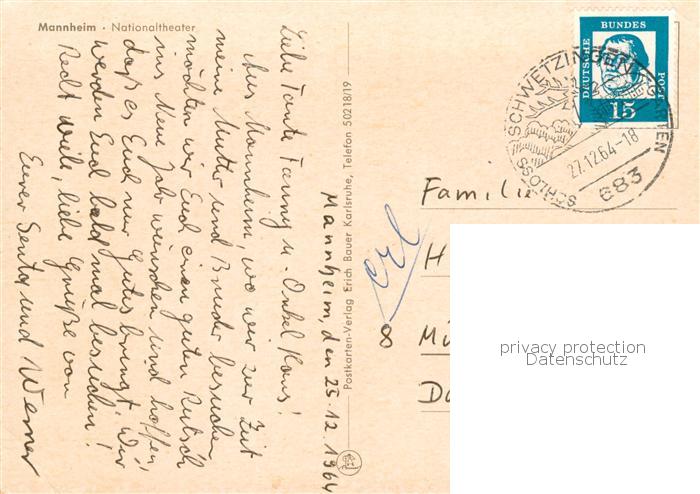 Mannheim · Nationaltheater
Mannheim, den 25.12.1964
Liebe Tante Fanny u. Onkel Hans!
Aus Mannheim, wo wir zur Zeit
meine Mutter und Bruder besuchen
möchten wir Euch einen guten Rutsch
ins Neue Jahr wünschen und hoffen
daß es Euch nur Gutes bringt! Wir
werden Euch bald mal besuchen!
Recht viele, liebe Grüße von
Eurer Senta und Werner
Postkarten-Verlag Erich Bauer Karlsruhe, Telefon 50218/19
DEUTSCHE BUNDES POST
15
SCHWETZINGEN
SCHLOSSGARTEN
27.12.64-18
683
Familie
H
8 Mü
erl
privacy protection
Datenschutz